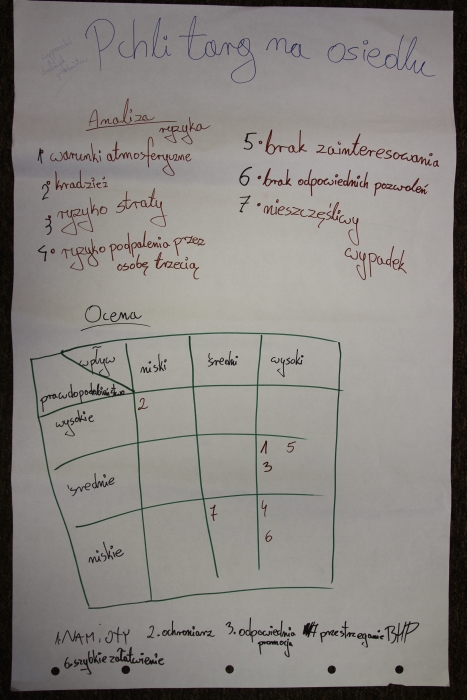 Pchli targ na osiedlu
Analiza
ryzyka
1 warunki atmosferyczne
2° kradzież
3° ryzyko straty
4° ryzyko podpalenia przez
osobę trzecią
5° brak zainteresowania
6° brak odpowiednich pozwoleń
7° nieszczęśliwy
wypadek
Ocena
wpływ
prawdopodobieństwo
niski średni wysoki
wysokie 2
średnie 1 5
3
niskie 7 4
6
1. NAMIOTY 2. ochroniarz 3. odpowiednia promocja 7 przestrzeganie BHP
6. szybkie załatwienie